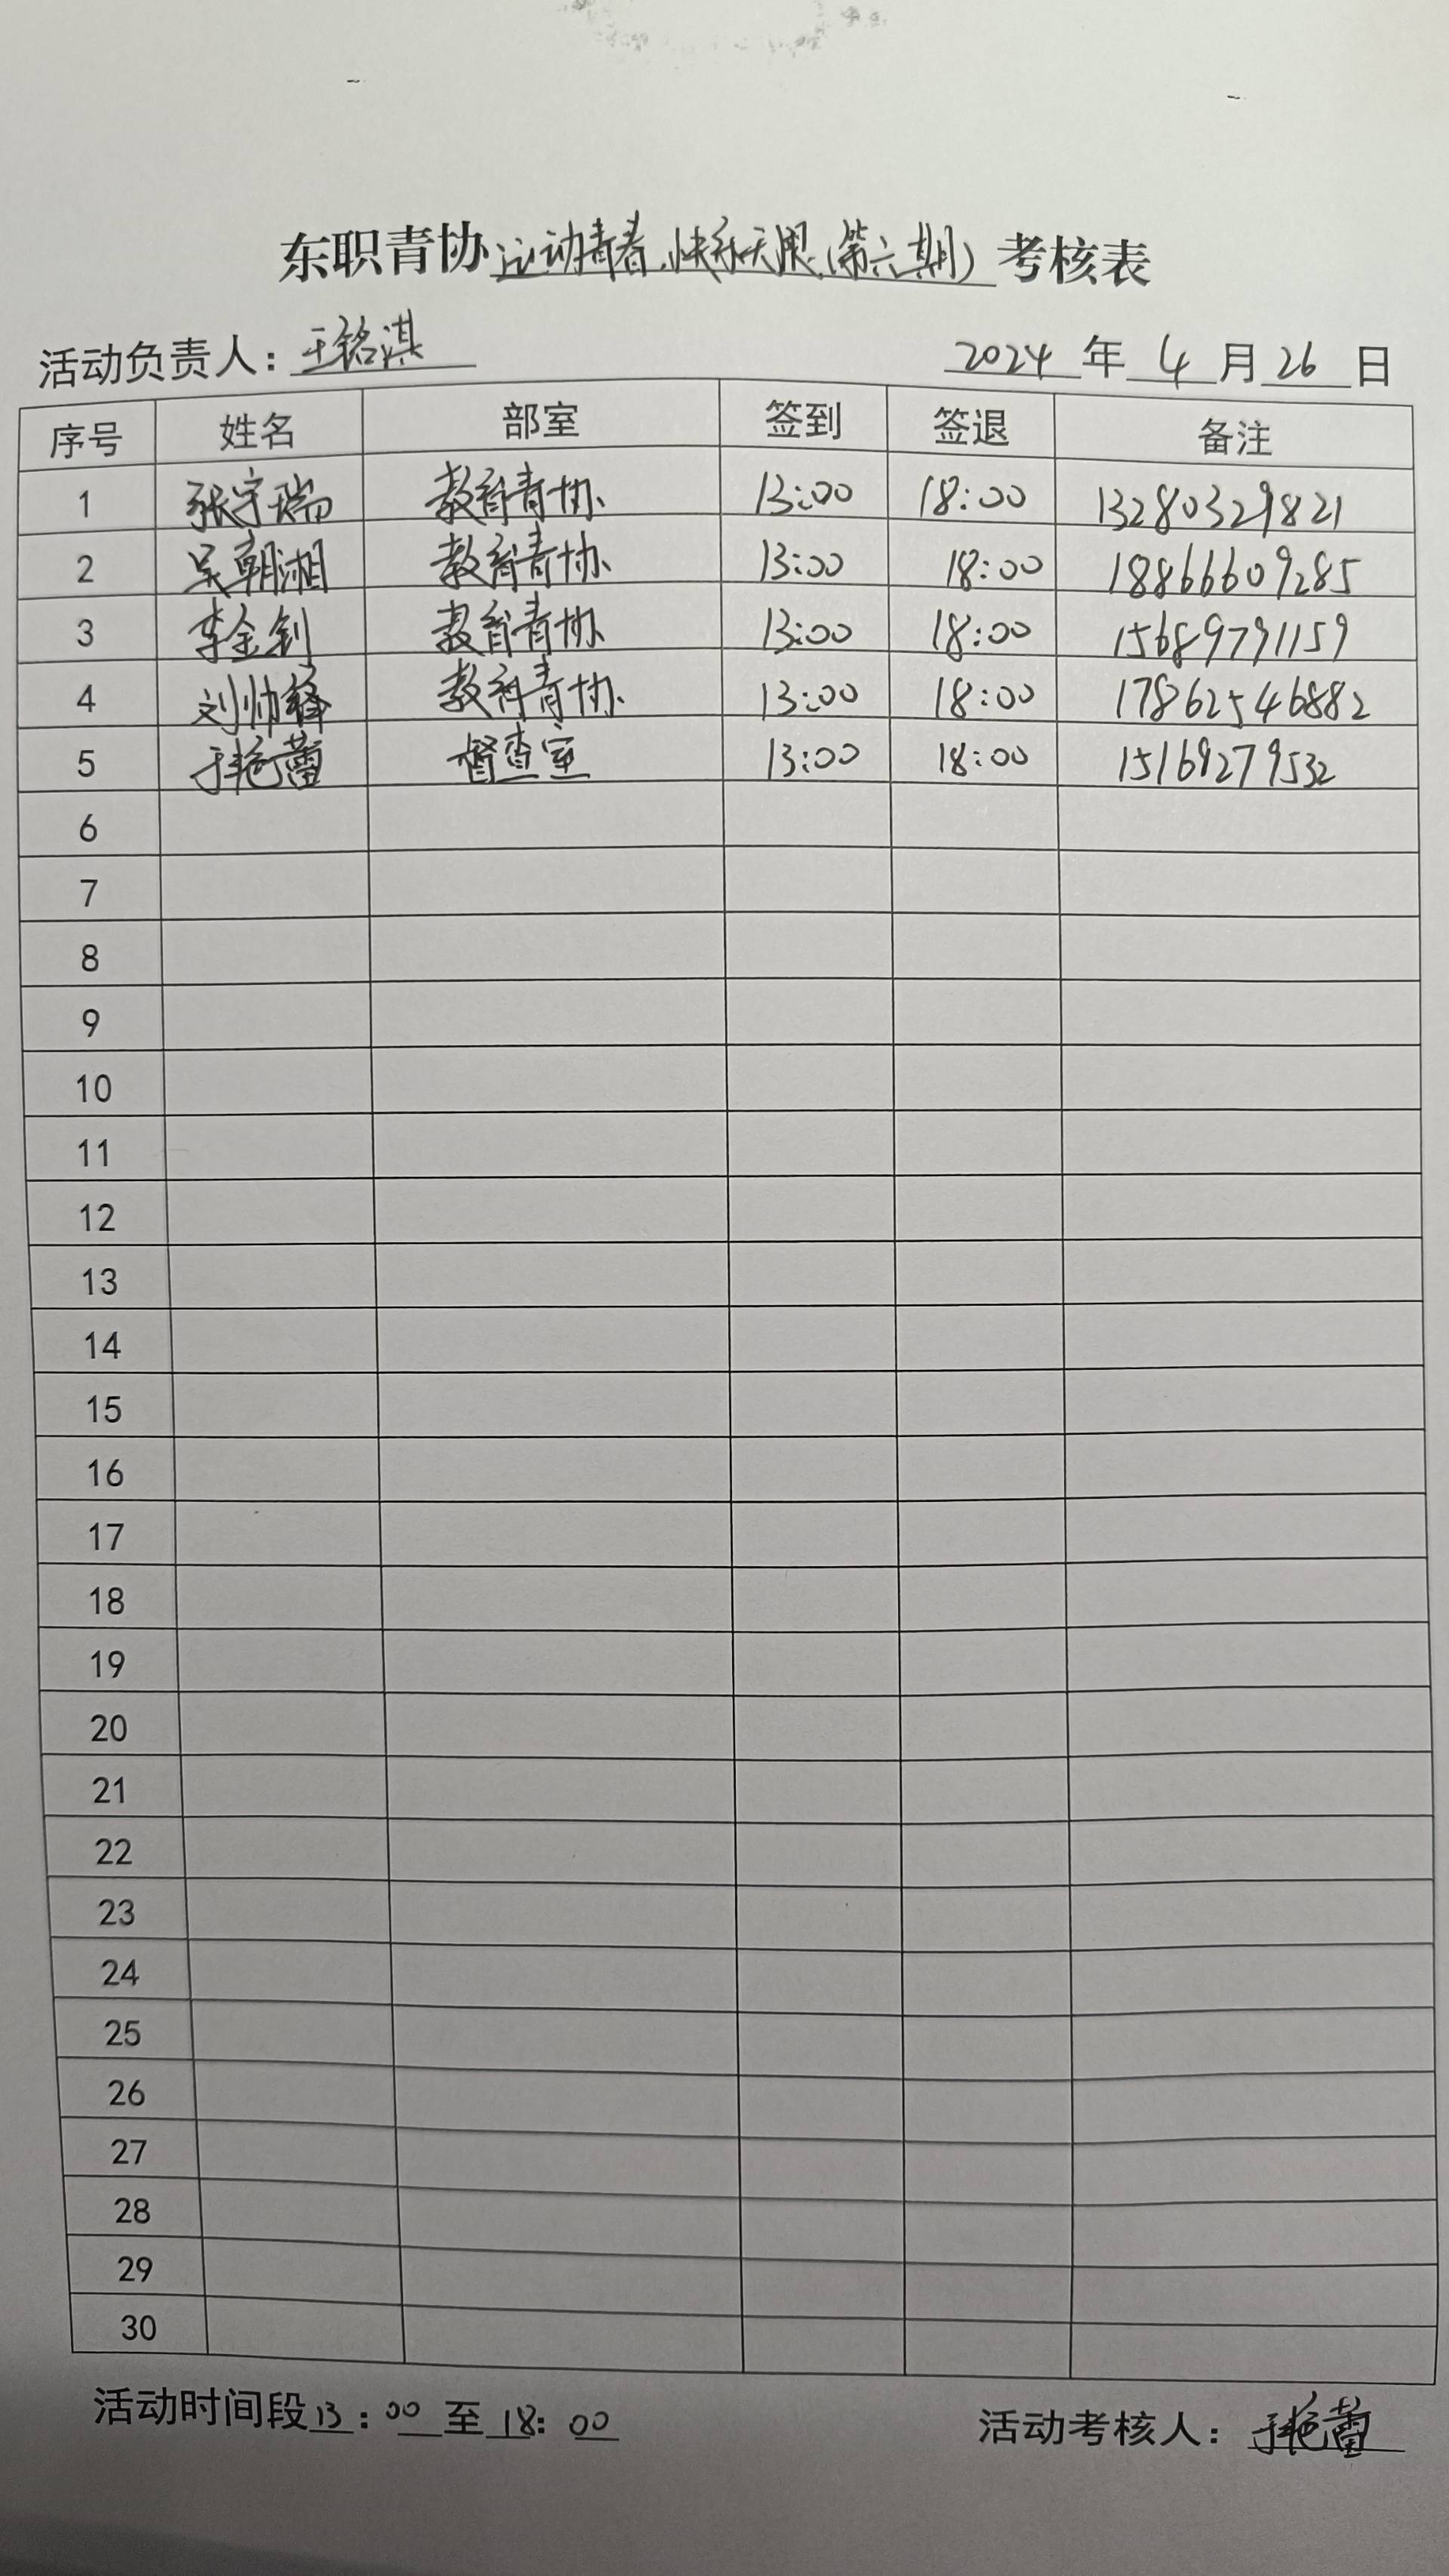 东职青协运动青春.快乐无限.(第六期)考核表
活动负责人：王铭淇 2024年4月26日
序号 姓名 部室 签到 签退 备注
1 张宇瑞 教育青协 13:00 18:00 13280329821
2 吴朝湘 教育青协 13:00 18:00 18866609285
3 李金钊 教育青协 13:00 18:00 15689791159
4 刘帅 教育青协 13:00 18:00 17862546882
5 于艳蕾 督查室 13:00 18:00 15169279532
6
7
8
9
10
11
12
13
14
15
16
17
18
19
20
21
22
23
24
25
26
27
28
29
30
活动时间段13：00至18：00 活动考核人：于艳蕾